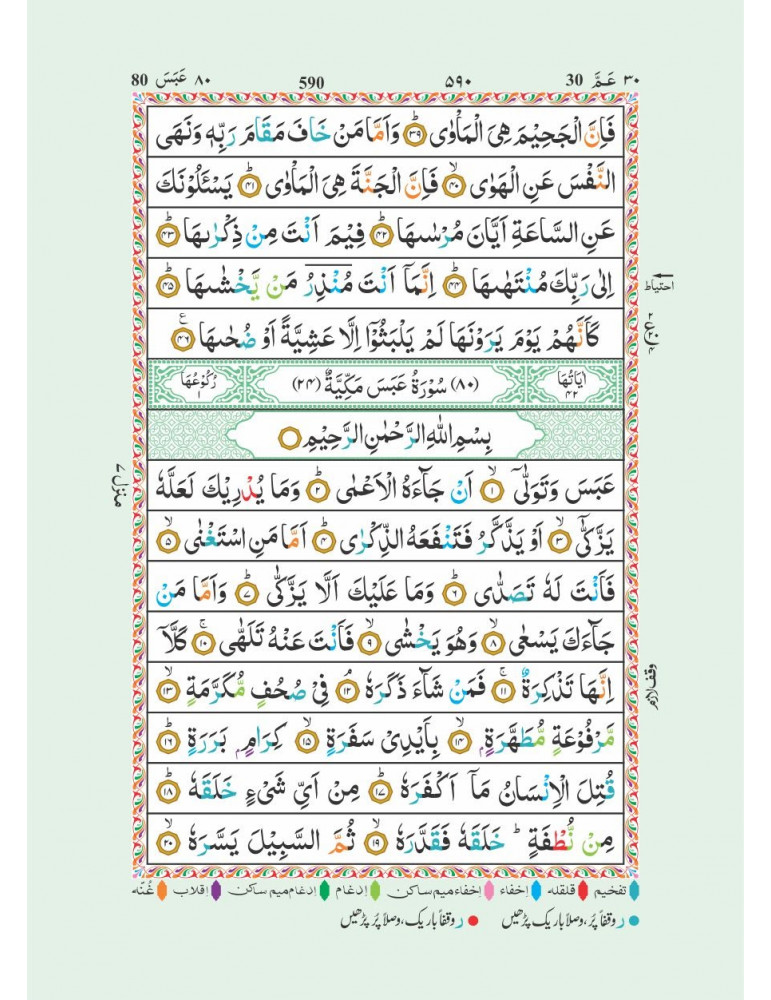 ٣٠ عَمَّ 30 ٥٩٠ 590 ٨٠ عَبَسَ 80
فَاِنَّ الْجَحِيْمَ هِىَ الْمَاْوٰى ؕ‏﴿۳۹﴾ وَاَمَّا مَنْ خَافَ مَقَامَ رَبِّهٖ وَنَهَى
النَّفْسَ عَنِ الْهَوٰى ۙ‏﴿۴۰﴾ فَاِنَّ الْجَنَّةَ هِىَ الْمَاْوٰى ؕ‏﴿۴۱﴾ يَسْـَٔلُوْنَكَ
عَنِ السَّاعَةِ اَيَّانَ مُرْسٰٮهَا ؕ‏﴿۴۲﴾ فِيْمَ اَنْتَ مِنْ ذِكْرٰٮهَا ؕ‏﴿۴۳﴾
اِلٰى رَبِّكَ مُنْتَهٰٮهَا ؕ‏﴿۴۴﴾ اِنَّمَاۤ اَنْتَ مُنْذِرُ مَنْ يَّخْشٰٮهَا ؕ‏﴿۴۵﴾
احتیاط
كَاَنَّهُمْ يَوْمَ يَرَوْنَهَا لَمْ يَلْبَثُوْۤا اِلَّا عَشِيَّةً اَوْ ضُحٰٮهَا ‏﴿۴۶﴾
اٰيَاتُهَا ۴۲ (۸۰) سُوْرَةُ عَبَسَ مَكِّيَّةٌ (۲۴) رُكُوْعُهَا ۱
بِسْمِ اللّٰهِ الرَّحْمٰنِ الرَّحِيْمِ
عَبَسَ وَتَوَلّٰٓى ۙ‏﴿۱﴾ اَنْ جَآءَهُ الْاَعْمٰى ؕ‏﴿۲﴾ وَمَا يُدْرِيْكَ لَعَلَّهٗ
منزل ۷
يَزَّكّٰٓى ۙ‏﴿۳﴾ اَوْ يَذَّكَّرُ فَتَنْفَعَهُ الذِّكْرٰى ؕ‏﴿۴﴾ اَمَّا مَنِ اسْتَغْنٰى ۙ‏﴿۵﴾
فَاَنْتَ لَهٗ تَصَدّٰى ؕ‏﴿۶﴾ وَمَا عَلَيْكَ اَلَّا يَزَّكّٰى ؕ‏﴿۷﴾ وَاَمَّا مَنْ
جَآءَكَ يَسْعٰى ۙ‏﴿۸﴾ وَهُوَ يَخْشٰى ۙ‏﴿۹﴾ فَاَنْتَ عَنْهُ تَلَهّٰى ۚ‏﴿۱۰﴾ كَلَّاۤ
اِنَّهَا تَذْكِرَةٌ ۚ‏﴿۱۱﴾ فَمَنْ شَآءَ ذَكَرَهٗ ۘ‏﴿۱۲﴾ فِىْ صُحُفٍ مُّكَرَّمَةٍ ۙ‏﴿۱۳﴾
وقف لازم
مَّرْفُوْعَةٍ مُّطَهَّرَةٍ ۙ‏﴿۱۴﴾ بِاَيْدِىْ سَفَرَةٍ ۙ‏﴿۱۵﴾ كِرَامٍۢ بَرَرَةٍ ؕ‏﴿۱۶﴾
قُتِلَ الْاِنْسَانُ مَاۤ اَكْفَرَهٗ ؕ‏﴿۱۷﴾ مِنْ اَىِّ شَىْءٍ خَلَقَهٗ ؕ‏﴿۱۸﴾
مِنْ نُّطْفَةٍ ؕ خَلَقَهٗ فَقَدَّرَهٗ ۙ‏﴿۱۹﴾ ثُمَّ السَّبِيْلَ يَسَّرَهٗ ۙ‏﴿۲۰﴾
تفخیم قلقله اِخفاء اِخفاء میم ساکن اِدغام اِدغام میم ساکن اِقلاب غُنّه
ر وقفاً پُر، وصلاً باریک پڑھیں ر وقفاً باریک، وصلاً پُر پڑھیں